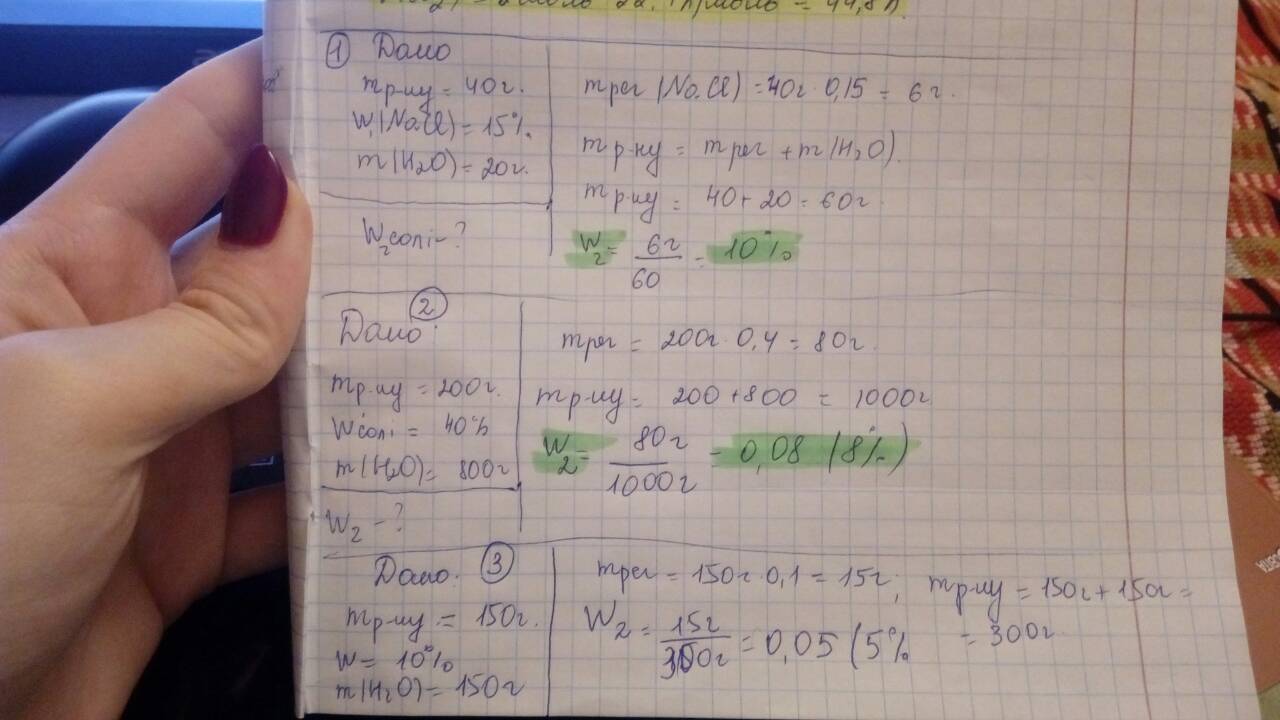 = 44,8л.
① Дано
mр-ну = 40г.
W₁(NaCl) = 15%
m(H₂O) = 20г.
W₂солі - ?
mреч (NaCl) = 40г · 0,15 = 6г.
mр-ну = mреч + m(H₂O).
mр-ну = 40 + 20 = 60г
W₂ = 6г/60 = 10%
②
Дано:
mр-ну = 200г.
Wсолі = 40%
m(H₂O) = 800г
W₂ - ?
mреч = 200г · 0,4 = 80г.
mр-ну = 200 + 800 = 1000г
W₂ = 80г/1000г = 0,08 (8%)
Дано. ③
mр-ну = 150г.
W = 10%
m(H₂O) = 150г
mреч = 150г · 0,1 = 15г; mр-ну = 150г + 150г =
= 300г
W₂ = 15г/300г = 0,05 (5%